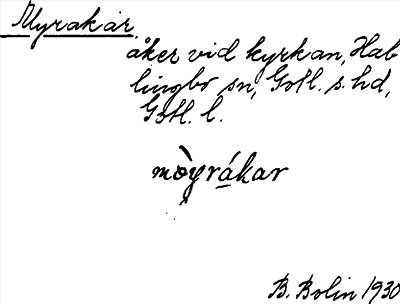 Myrakar
åker vid kyrkan, Hab
lingbo sn, Gotl. s. hd,
Gotl. l.
mòyrákar
B. Bolin 1930